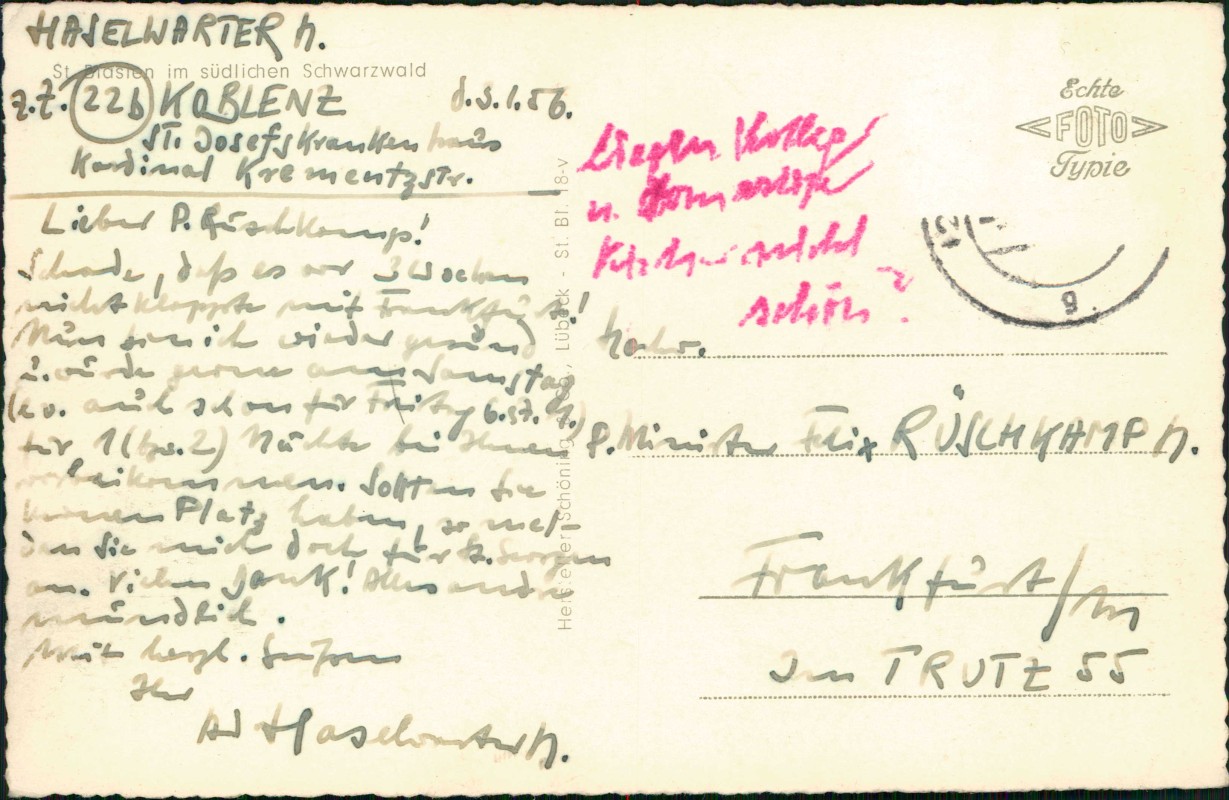 HASELWARTER
St. Blasien im südlichen Schwarzwald
z.Z. 22b KOBLENZ d. 3.1.56.
St. Josefskrankenhaus
Kardinal Krementzstr.
Lieber P. Rüschkamp!
Schade, daß es vor 3 Wochen
nicht klappte mit Frankfurt!
Nun bin ich wieder gesund
u. würde gerne am Samstag
auch schon für Freitag
für 1 (bzw. 2) Nächte bei Ihnen
vorbeikommen. Sollten Sie
keinen Platz haben, so mel-
den Sie mich doch für
an. Vielen Dank! Alles andre
mündlich.
Mit herzl. Grüßen
Ihr
Ad Haselwarter
Liegen Kolleg
u.
nicht
schön?
Lübeck - St. Bl. 18-v
Echte
FOTO
Typie
P. Minister Felix RÜSCHKAMP
Frankfurt/M
Im TRUTZ 55